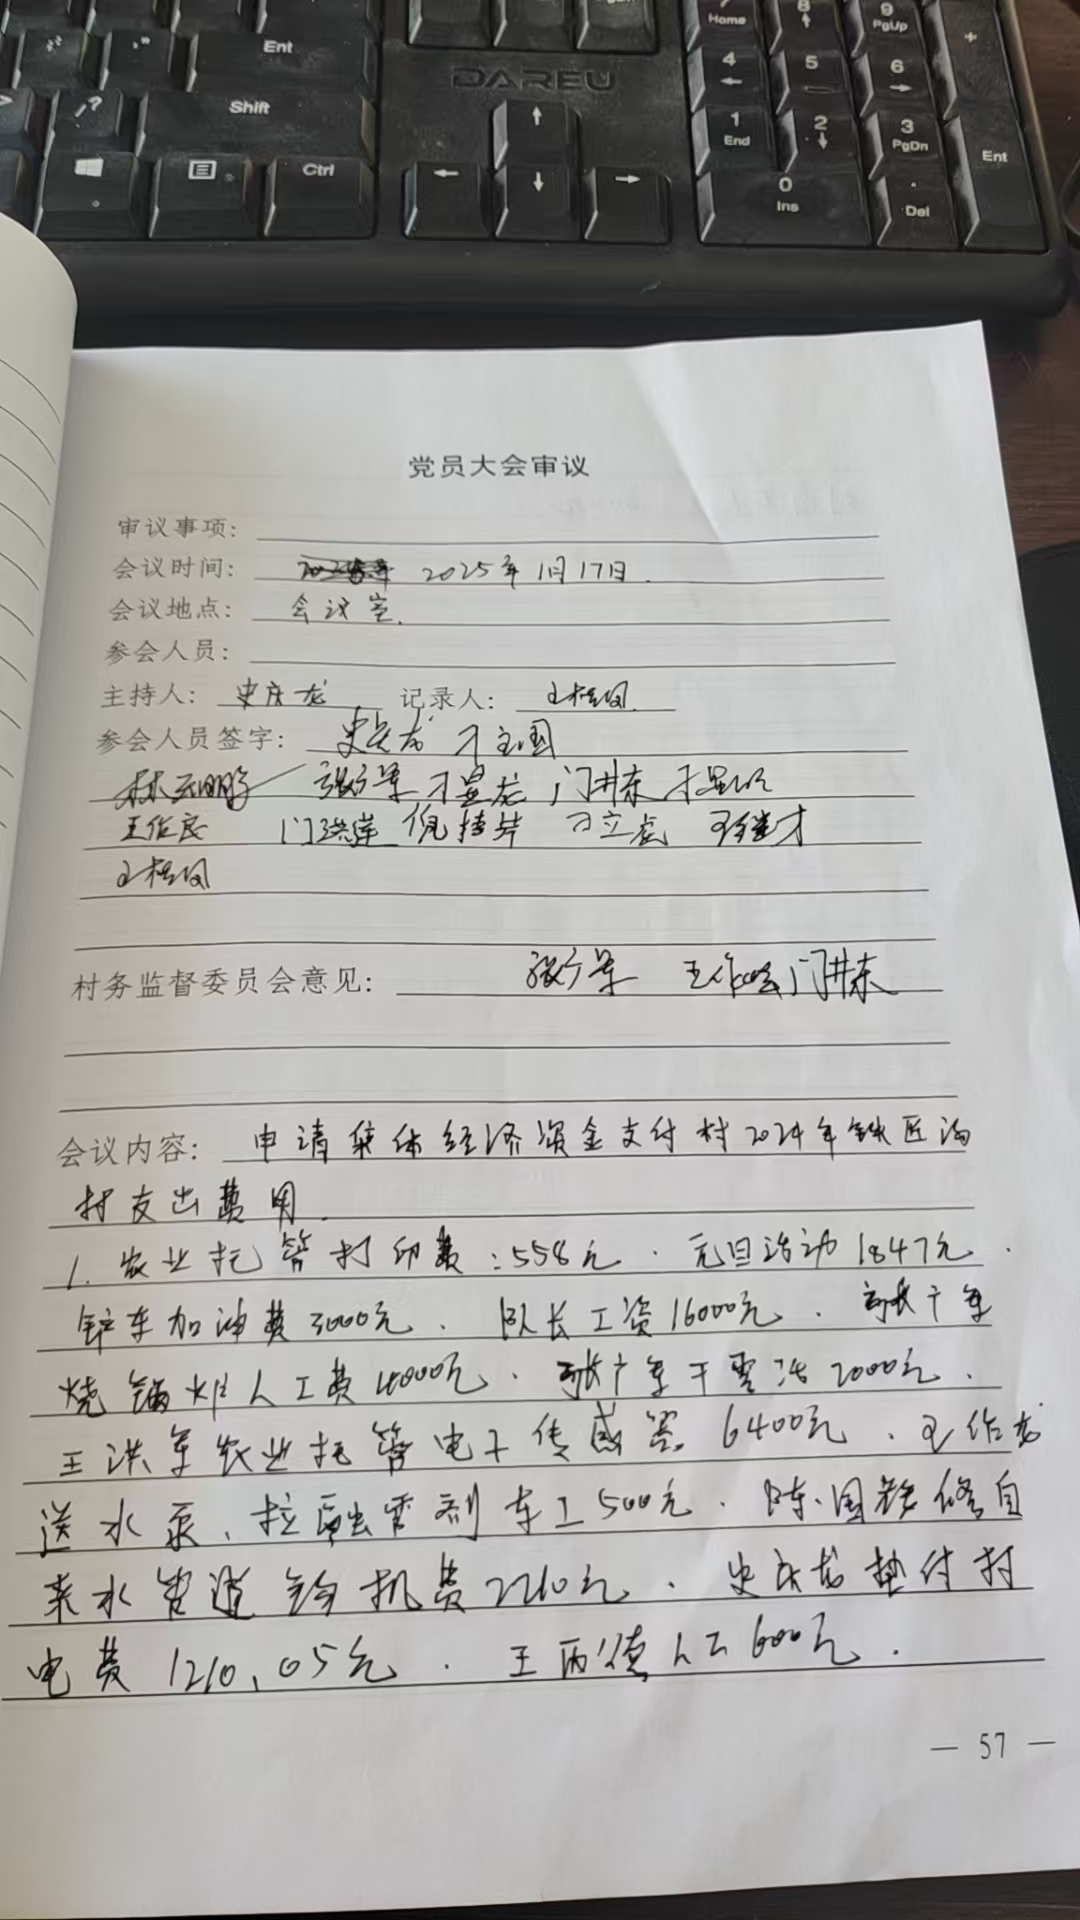 Home
8
9
PgUp
+
Ent
4
5
6
DAREU
Shift
1
End
2
3
PgDn
Ent
Ctrl
0
Ins
.
Del
党员大会审议
审议事项:
会议时间: 2025年1月17日.
会议地点: 会议室.
参会人员:
主持人: 史庆龙 记录人: 王桂凤
参会人员签字: 史庆龙 刁宝国
张广军 刁显龙 门井东
王作良 门洪岸 倪桂华 刁立龙 王继才
王桂凤
村务监督委员会意见: 张广军 门井东
会议内容: 申请集体经济资金支付村2024年铁匠沟
村支出费用.
1. 农业托管打印费:558元. 元旦活动1847元.
铲车加油费3000元. 队长工资16000元. 张广军
烧锅炉人工费4000元. 张广军干零活2000元.
王洪军农业托管电子传感器6400元. 王作龙
送水泵、拉融雪剂车工500元. 陈国铁修自
来水管道钩机费2210元. 史庆龙垫付村
电费1210.05元. 王丙德人工600元.
— 57 —